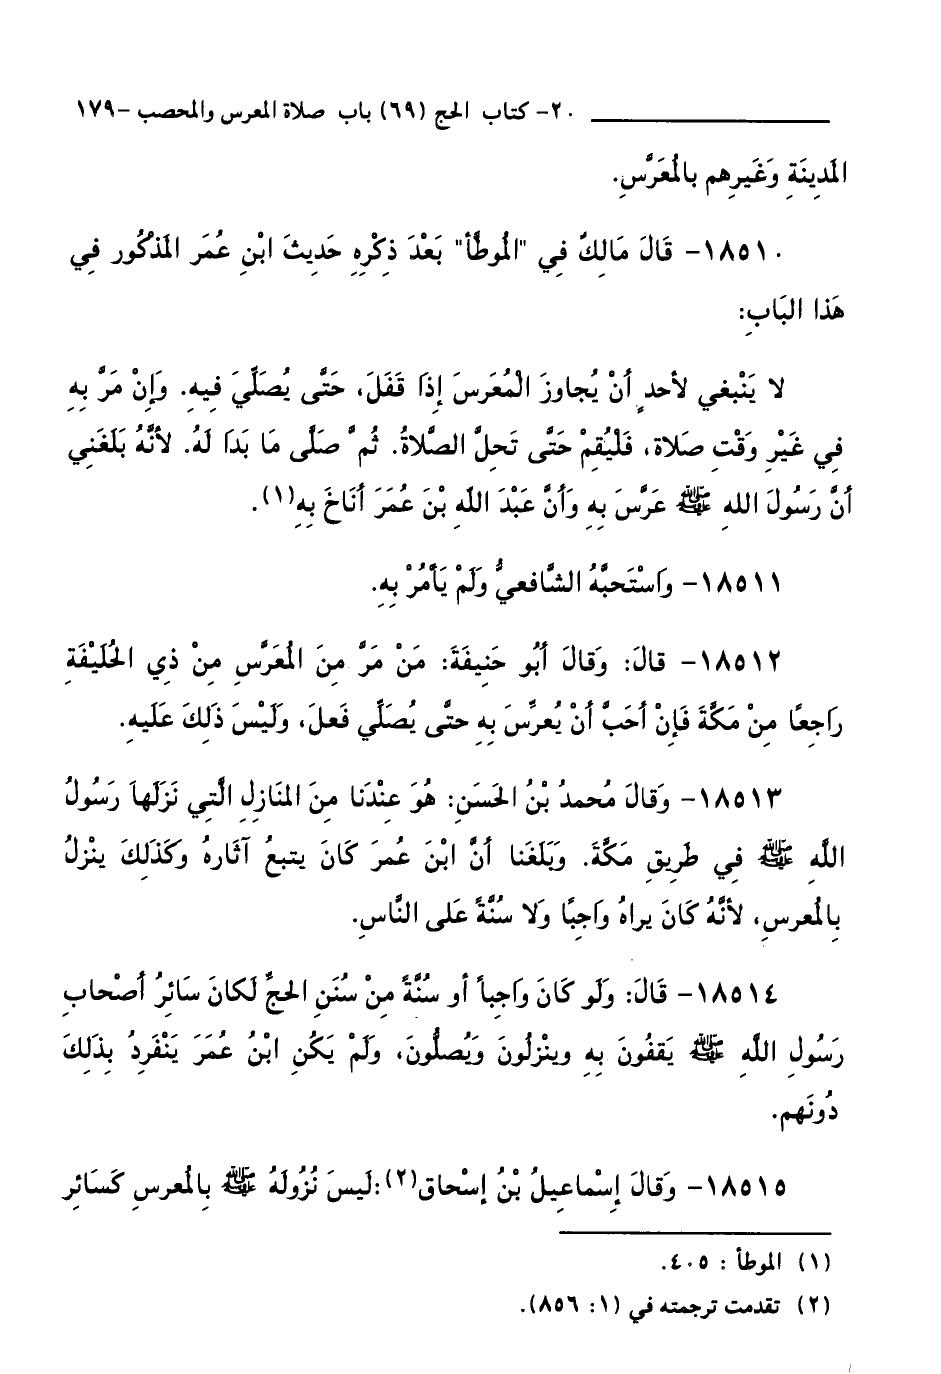 ٢٠- كتاب الحج (٦٩) باب صلاة المعرس والمحصب -١٧٩
المَدِينَةِ وَغَيرِهِم بالمُعَرَّسِ.
١٨٥١٠- قَالَ مَالِكٌ فِي "المُوطَّأ" بَعْدَ ذِكْرِهِ حَدِيثَ ابْنِ عُمَرَ المَذْكُور فِي
هَذا البَابِ:
لا يَنْبغي لأحدٍ أنْ يُجاوزَ الْمُعَرسَ إِذَا قَفَلَ، حَتَّى يُصَلِّيَ فيهِ. وَإِنْ مَرَّ بِهِ
فِي غَيْرِ وَقْتِ صَلاة، فَلْيُقِمْ حَتَّى تَحلَّ الصَّلاةُ. ثُمَّ صَلَّى مَا بَدَا لَهُ. لأنَّهُ بَلَغَنِي
أنَّ رَسُولَ اللهِ ﷺ عَرَّسَ بِهِ وَأنَّ عَبْدَ اللَّهِ بْنَ عُمَرَ أنَاخَ بِهِ(١).
١٨٥١١- واَسْتَحبَّهُ الشَّافعيُّ وَلَمْ يَأمُرْ بِهِ.
١٨٥١٢- قالَ: وَقالَ أبُو حَنِيفَةَ: مَنْ مَرَّ مِنَ المُعَرَّسِ مِنْ ذِي الحُلَيْفَةِ
رَاجِعًا مِنْ مَكَّةَ فَإِنْ أحَبَّ أنْ يُعرِّسَ بِهِ حتَّى يُصَلِّي فَعلَ، وَلَيْسَ ذَلِكَ عَلَيهِ.
١٨٥١٣- وَقالَ مُحمدُ بْنُ الحَسَنِ: هُوَ عنْدَنا مِنَ المْنَازِلِ الَّتِي نَزَلَها رَسُولُ
اللَّهِ ﷺ في طَرِيقِ مَكَّةَ. وَبَلَغَنا أنَّ ابْنَ عُمرَ كَانَ يتبعُ آثَارهُ وَكَذَلِكَ ينْزلُ
بِالمُعرسِ، لأنَّهُ كَانَ يراهُ وَاجِبًا وَلا سُنَّةً عَلى النَّاسِ.
١٨٥١٤- قَالَ: وَلَو كَانَ وَاجِباً أو سُنَّةً مِنْ سُنَنِ الحجِّ لَكانَ سَائِرُ أصْحابِ
رَسُولِ اللَّهِ ﷺ يَقفُونَ بِهِ وينْزلُونَ وَيُصلُّونَ، وَلَمْ يَكُنِ ابْنُ عُمَرَ يَنْفَرِدُ بِذَلِكَ
دُونَهم.
١٨٥١٥- وَقَالَ إِسْماعيلُ بْنُ إِسْحاق(٢):لَيسَ نُزُولَهُ ﷺ بِالمُعرسِ كَسَائِر
(١) الموطأ : ٤٠٥.
(٢) تقدمت ترجمته في (١: ٨٥٦).